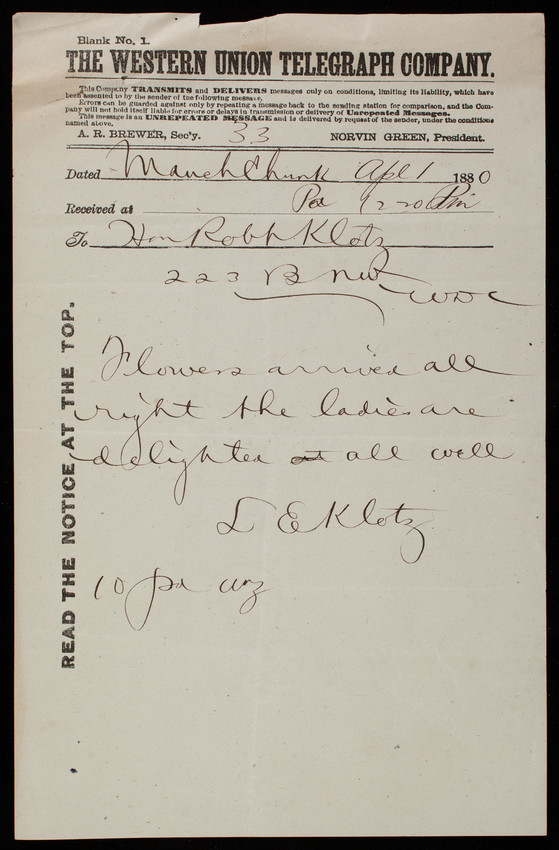 Blank No. 1.
THE WESTERN UNION TELEGRAPH COMPANY.
This Company TRANSMITS and DELIVERS messages only on conditions, limiting its liability, which have
been assented to by the sender of the following message.
Errors can be guarded against only by repeating a message back to the sending station for comparison, and the Com-
pany will not hold itself liable for errors or delays in transmission or delivery of Unrepeated Messages.
This message is an UNREPEATED MESSAGE and is delivered by request of the sender, under the conditions
named above.
A. R. BREWER, Sec'y. 33 NORVIN GREEN, President.
Dated Mauch Chunk Apl 1 1880
Received at Pa 12 20 Pm
To Hon Robt Klotz
223 B NW
WDC
Flowers arrived all
right the ladies are
delighted all well
L E Klotz
10 pd
READ THE NOTICE AT THE TOP.